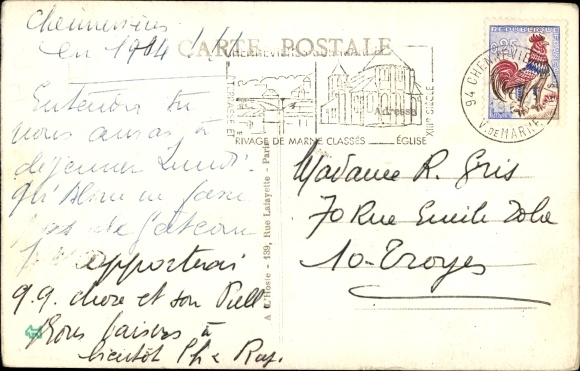 Chennevières
en 1914 !!
CARTE POSTALE
Entendu tu
nous auras à
déjeuner Lundi
pas de gâteau
apporterai
q.q. chose et son Pull
Bons baisers à
bientôt Ph & Ray.
A. L'Hoste - 139, Rue Lafayette - Paris
Adresse
TERRASSE ET
RIVAGE DE MARNE CLASSÉS
ÉGLISE
XIIIe SIÈCLE
REPUBLIQUE FRANCAISE
0,25
94 CHENNEVIERES
V. DE MARNE
Madame R. Gris
70 Rue Emile Zola
10-Troyes